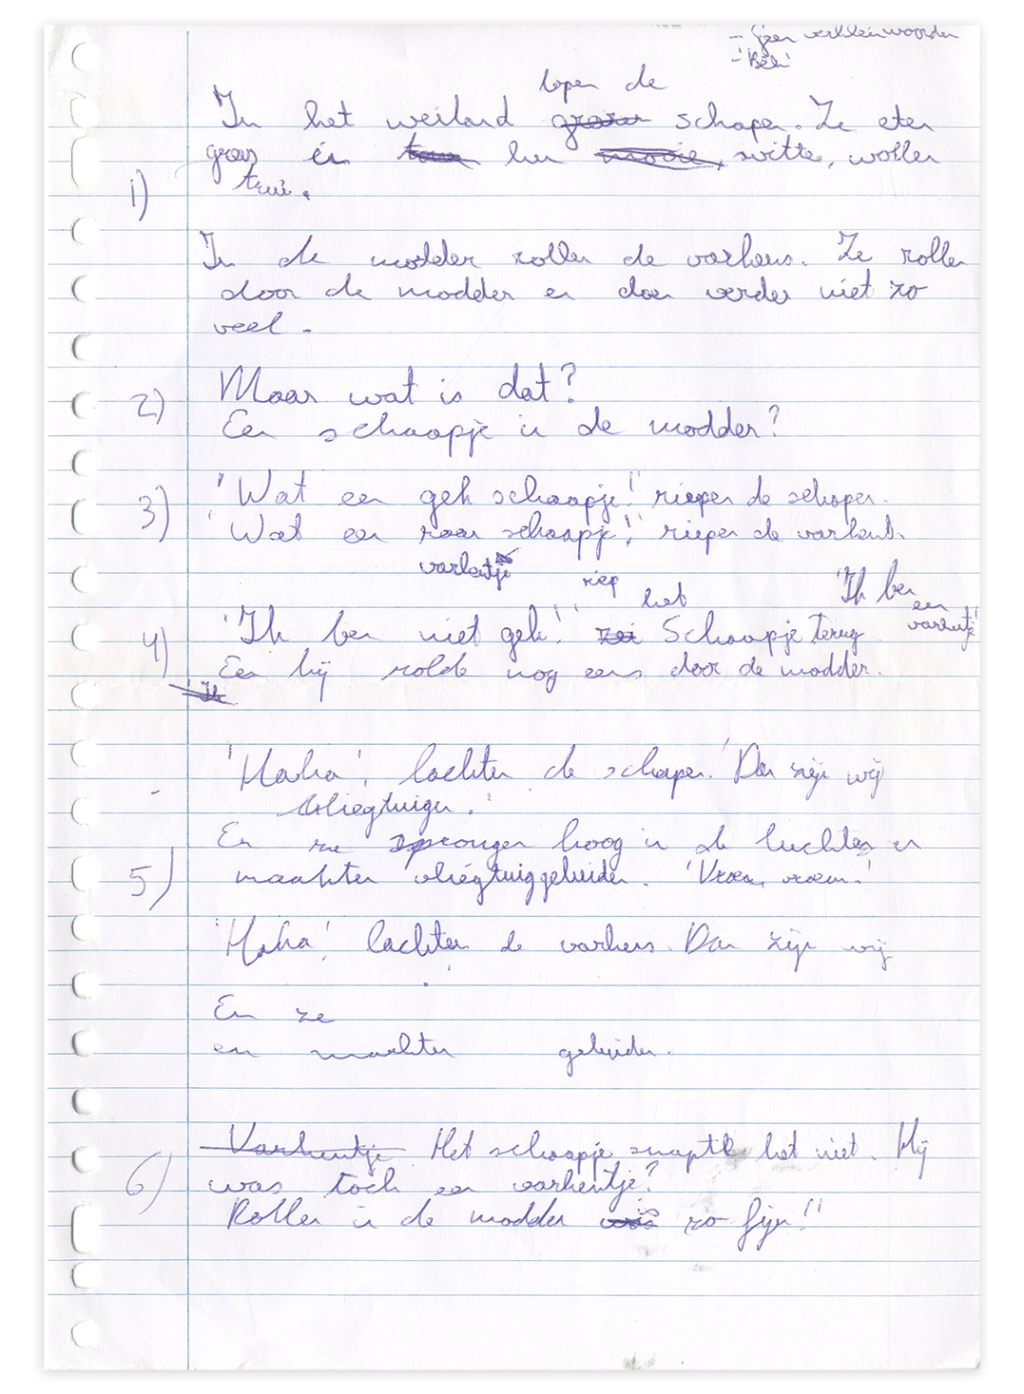 - Geen verkleinwoorden
- 'Bèh'
lopen de
In het weiland grazen schapen. Ze eten
gras en hun mooie, witte, wollen
1) trui.
In de modder rollen de varkens. Ze rollen
door de modder en doen verder niet zo
veel.
2) Maar wat is dat?
Een schaapje in de modder?
3) 'Wat een gek schaapje!' riepen de schapen.
'Wat een raar schaapje!' riepen de varkens.
varkentje
riep het 'Ik ben een varkentje!'
4) 'Ik ben niet gek!' zei Schaapje terug
En hij rolde nog eens door de modder.
Ik
'Haha', lachten de schapen. 'Dan zijn wij
vliegtuigen.'
En ze sprongen hoog in de luchten en
5) maakten vliegtuiggeluiden. 'Vroem, vroem.'
'Haha', lachten de varkens. Dan zijn wij
En ze
en maakten geluiden.
Varkentje Het schaapje snapte het niet. Hij
6) was toch een varkentje?
Rollen in de modder was is zo fijn!'